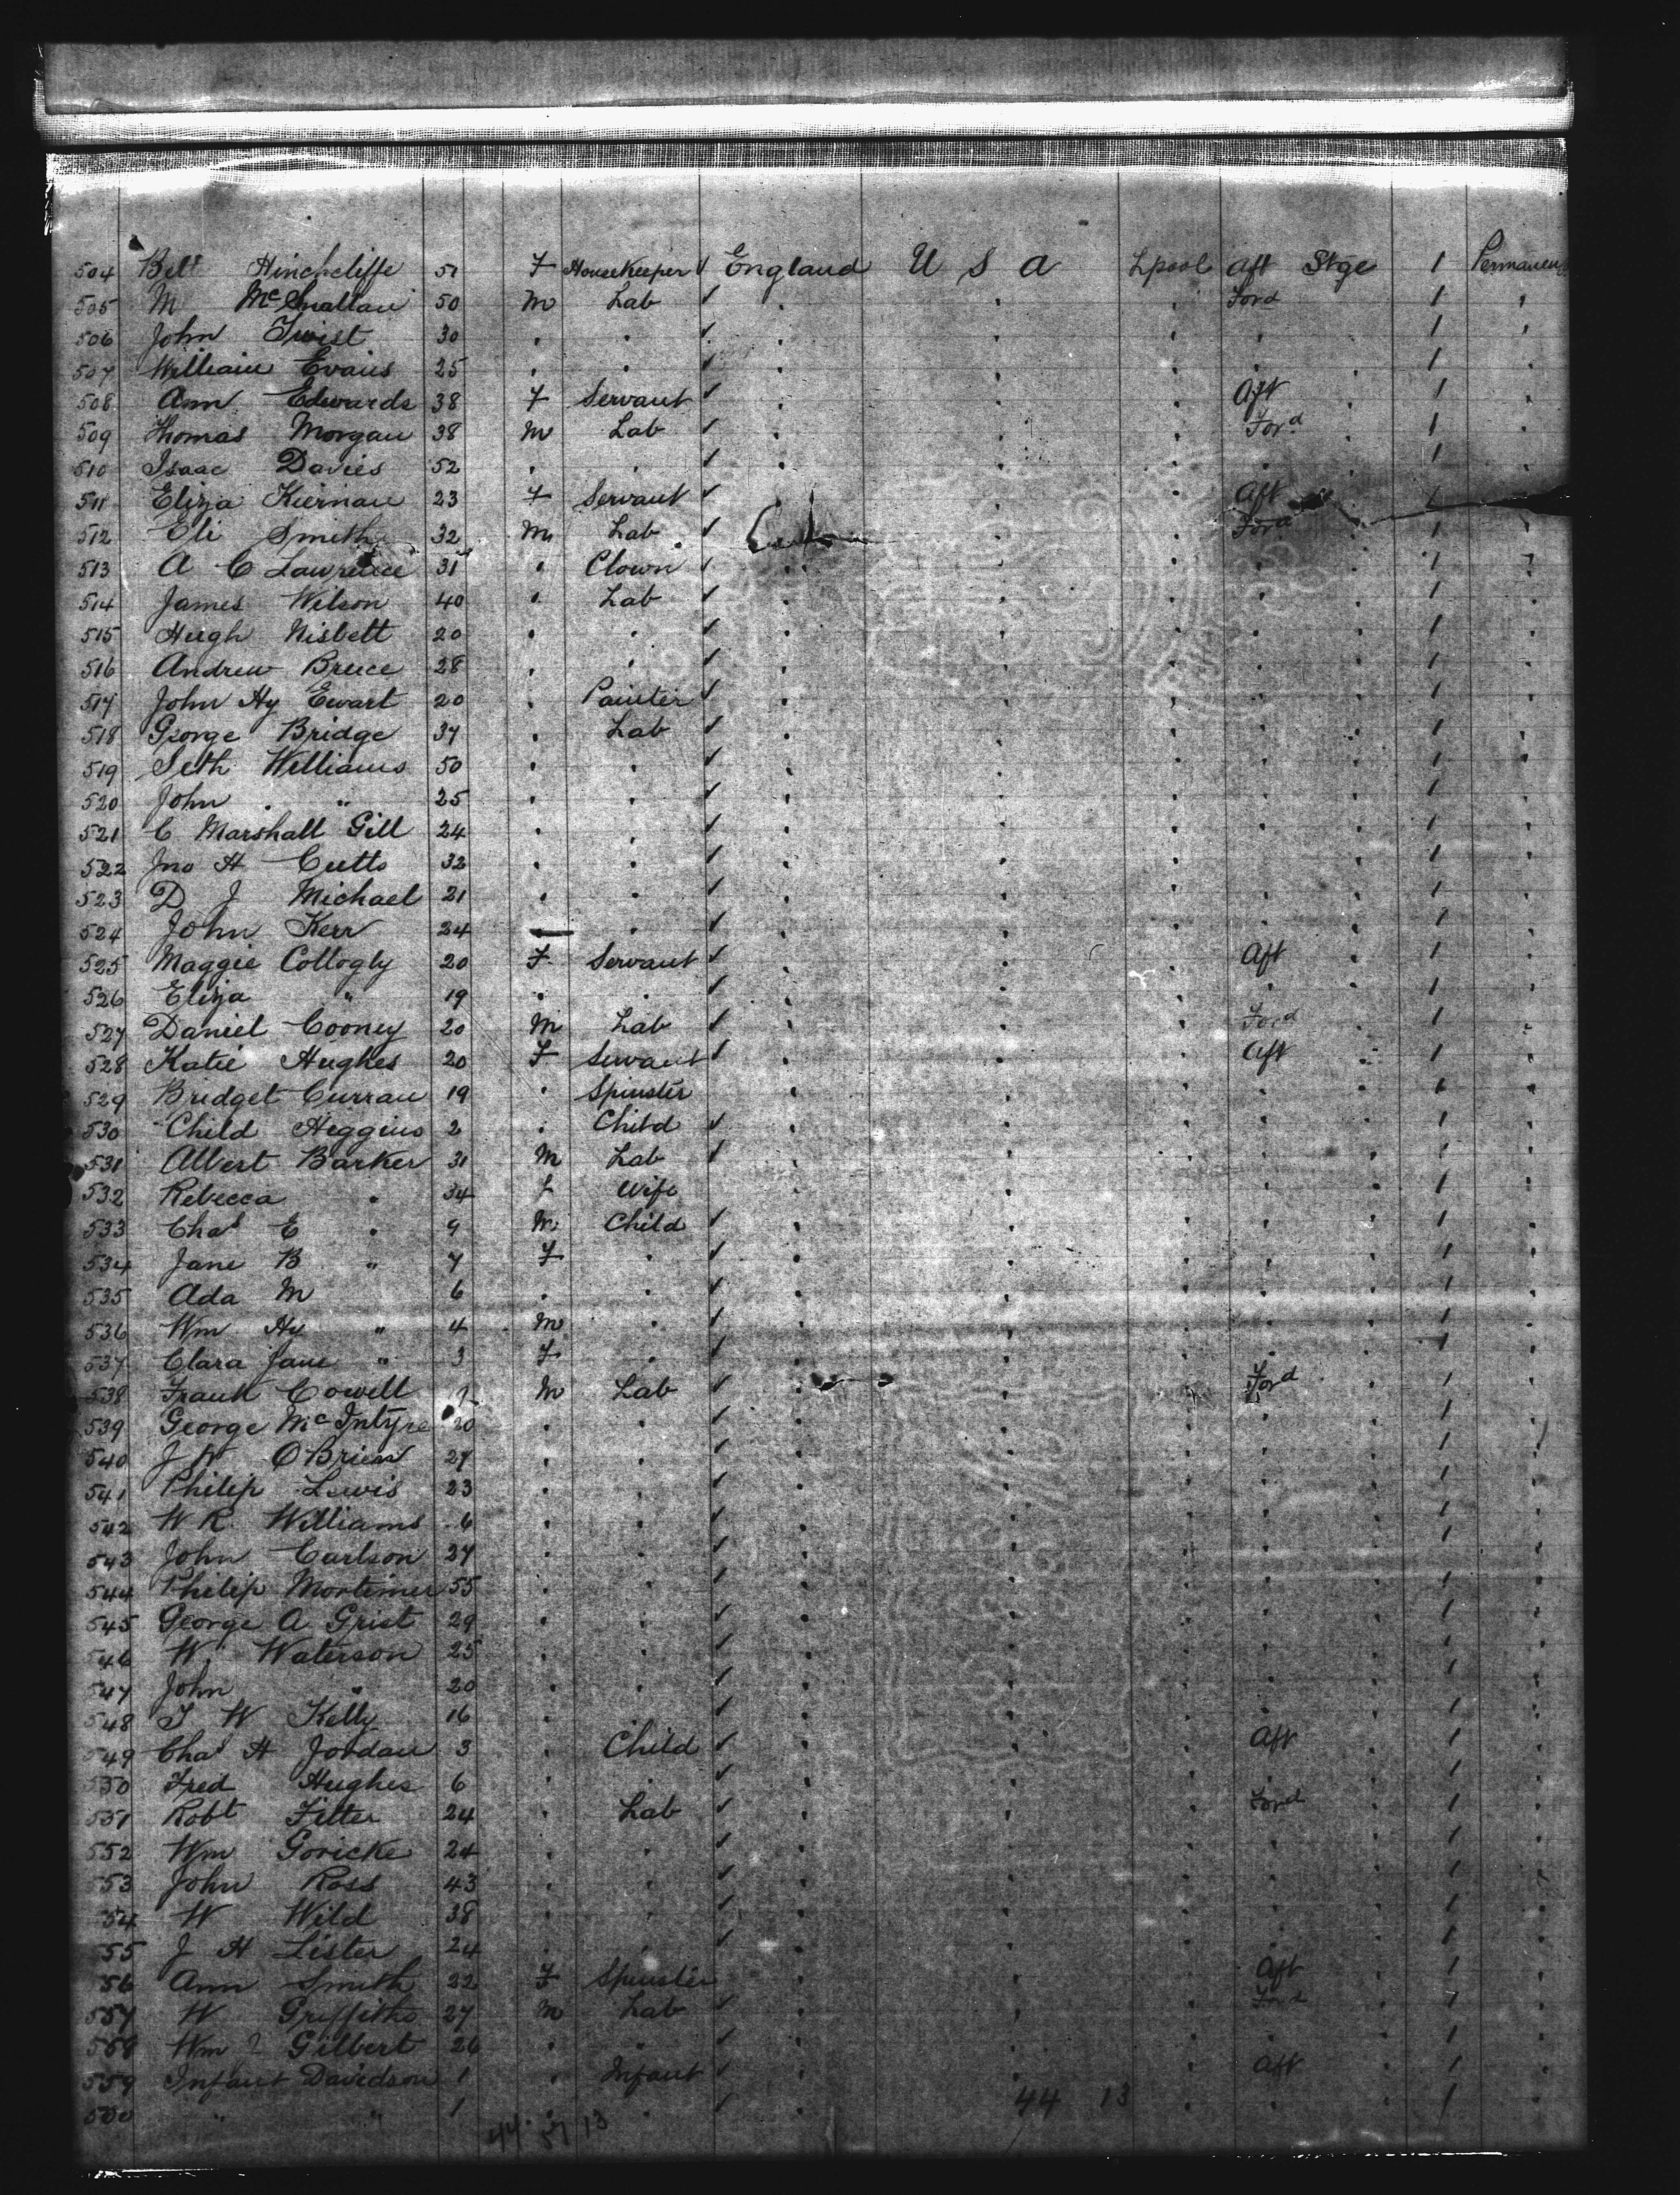 504 Bell Hinchcliffe 51 F Housekeeper ✓ England U S A Lpool Aft Stge 1 Permanent
505 M 50 M Lab ✓ " " " Ford " 1 "
506 John Twist 30 " " ✓ " " " " " 1 "
507 William Evans 25 " " ✓ " " " " " 1 "
508 Ann Edwards 38 F Servant ✓ " " " Aft " 1 "
509 Thomas Morgan 38 M Lab ✓ " " " Ford " 1 "
510 Isaac Davies 52 " " ✓ " " " " " 1 "
511 Eliza Kiernan 23 F Servant ✓ " " " Aft 1 "
512 Eli Smith 32 M Lab ✓ " " Ford 1 "
513 A C Lawrence 31 " Clown ✓ " " " " " 1 "
514 James Wilson 40 " Lab ✓ " " " " " 1 "
515 Hugh Nisbett 20 " " ✓ " " " " " 1 "
516 Andrew Bruce 28 " " ✓ " " " " " 1 "
517 John Hy Ewart 20 " Painter ✓ " " " " " 1 "
518 George Bridge 37 " Lab ✓ " " " " " 1 "
519 Seth Williams 50 " " ✓ " " " " " 1 "
520 John " 25 " " ✓ " " " " " 1 "
521 C Marshall Gill 24 " " ✓ " " " " " 1 "
522 Jno H Cutts 32 " " ✓ " " " " " 1 "
523 D J Michael 21 " " ✓ " " " " " 1 "
524 John Kerr 24 " ✓ " " " " " 1 "
525 Maggie Collogly 20 F Servant ✓ " " " Aft " 1 "
526 Eliza " 19 " " ✓ " " " " " 1 "
527 Daniel Cooney 20 M Lab ✓ " " " Ford " 1 "
528 Katie Hughes 20 F Servant ✓ " " " Aft " 1 "
529 Bridget Curran 19 " Spinster " " " " " 1 "
530 Child Higgins 2 " Child ✓ " " " " " 1 "
531 Albert Barker 31 M Lab ✓ " " " " " 1 "
532 Rebecca " 34 f Wife " " " " " 1 "
533 Chas E " 9 M Child ✓ " " " " " 1 "
534 Jane B " 7 F " ✓ " " " " " 1 "
535 Ada M 6 " " ✓ " " " " " 1 "
536 Wm Hy " 4 M " ✓ " " " " " 1 "
537 Clara Jane " 3 F " ✓ " " " " " 1 "
538 Frank Cowell M Lab ✓ " " " Ford " 1 "
539 George McIntyre 20 " " ✓ " " " " " 1 "
540 J W OBrien 27 " " ✓ " " " " " 1 "
541 Philip Lewis 23 " " ✓ " " " " " 1 "
542 W R Williams " " ✓ " " " " " 1 "
543 John Carlson 27 " " ✓ " " " " " 1 "
544 Philip Mortimer 55 " " ✓ " " " " " 1 "
545 George A Grist 29 " " ✓ " " " " " 1 "
546 W. Waterson 25 " " ✓ " " " " " 1 "
547 John " 20 " " ✓ " " " " " 1 "
548 T W Kelly 16 " " ✓ " " " " " 1 "
549 Chas H Jordan 3 " Child ✓ " " " Aft " 1 "
550 Fred Hughes 6 " " ✓ " " " " " 1 "
551 Robt Filter 24 " Lab ✓ " " " Ford " 1 "
552 Wm Goricke 24 " " ✓ " " " " " 1 "
553 John Ross 43 " " ✓ " " " " " 1 "
54 W Wild 38 " " ✓ " " " " " 1 "
55 J H Lister 24 " " ✓ " " " " " 1 "
56 Ann Smith 22 F Spinster " " " Aft " 1 "
557 W Griffiths 27 M Lab ✓ " " " Ford " 1 "
558 Wm Gilbert 26 " " ✓ " " " " " 1 "
559 Infant Davidson 1 " Infant ✓ " " " Aft " 1 "
" " 1 " " ✓ " 44 13 " " " 1 "
44 57 13